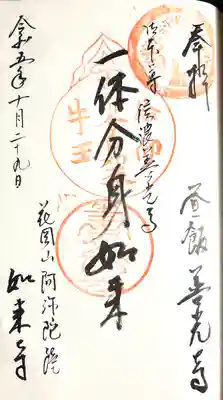 奉拝
昼飯善光寺
御本尊 信濃善光寺
一体分身如来
牛王
花岡山阿弥陀院
如来寺
令和五年十月二十九日